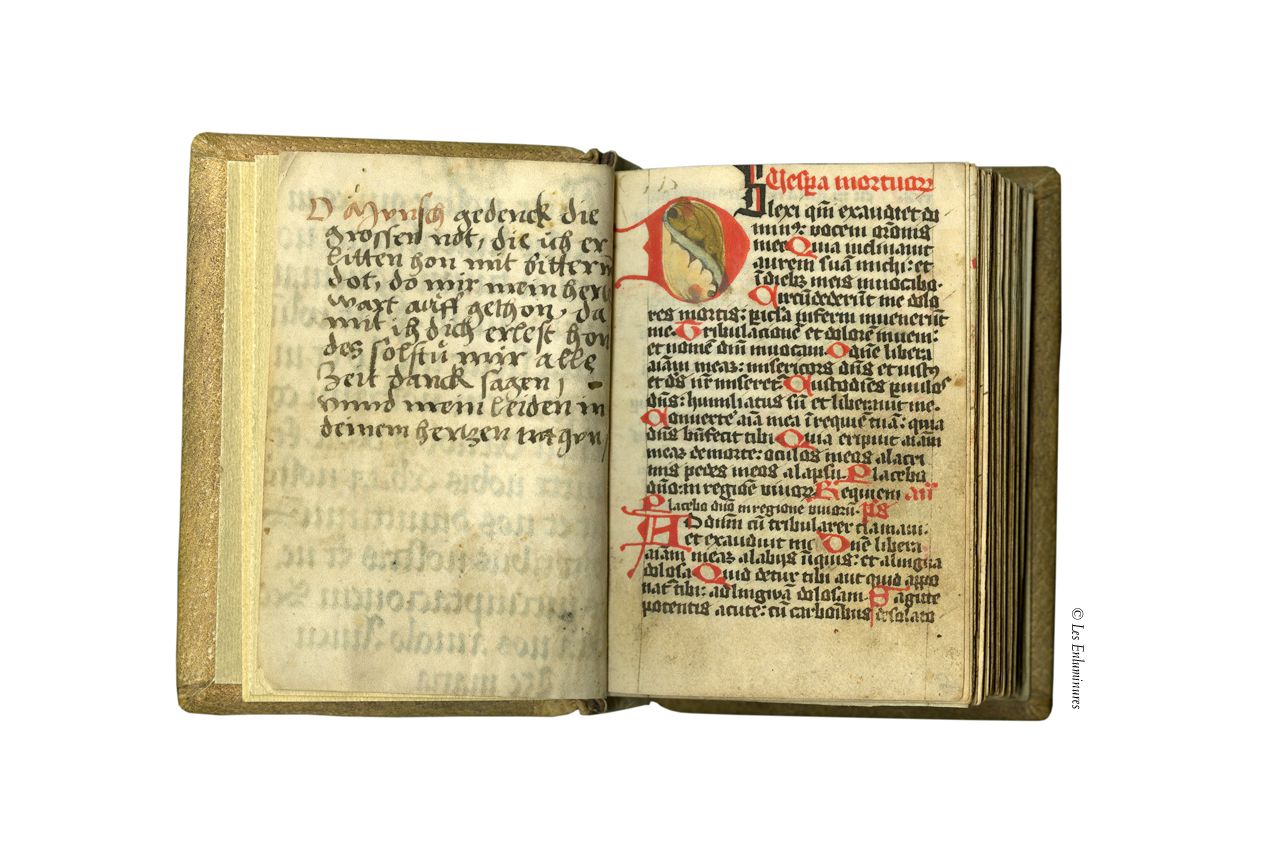 O Mensch gedenck die
grossen not, die ich er
litten hon mit bitterm
dot, do mir mein hercz
wart auff gethon, da
mit ich dich erlest hon
des solstu mir alle
Zeit danck sagen,
vnnd mein leiden in
deinem hertzen tragen,
Vesp̃a mortuoꝝ
Dilexi qm̃ exaudiet do
minꝰ: vocem or̃onis
mee Quia inclinauit
aurem suã michi: et
ĩ diebꝫ meis inuocabo.
Circũdederũt me dolo
res mortis: pic̃la inferni inuenerũt
me. Tribulacionẽ et dolorẽ inueni:
et nomẽ dñi inuocaui. O dñe libera
aiam̃ meaꝫ: misericors dñs et iustus
et ds̃ nr̃ miseret᷑ Custodiẽs ꝑuulos
dñs: humiliatus sũ et liberauit me.
Conuerte aĩa mea ĩ requiẽ tuã: quia
dñs bñfecit tibi Quia eripuit aĩam
meaꝫ de morte: oculos meos a lacri
mis pedes meos a lapsu. Placebo
dño: in regiõe viuoꝝ Requiem añ
Placebo dño in regione viuorũ. ps̃
Ad dñm cũ tribularer clamaui:
et exaudiuit me Dñe libera
aĩam meaꝫ a labijs iñquis: et a lingua
dolosa Quid detur tibi aut quid appo
nat᷑ tibi: ad linguã dolosam Sagitte
potentis acute: cũ carbonibus desolato
© Les Enluminures